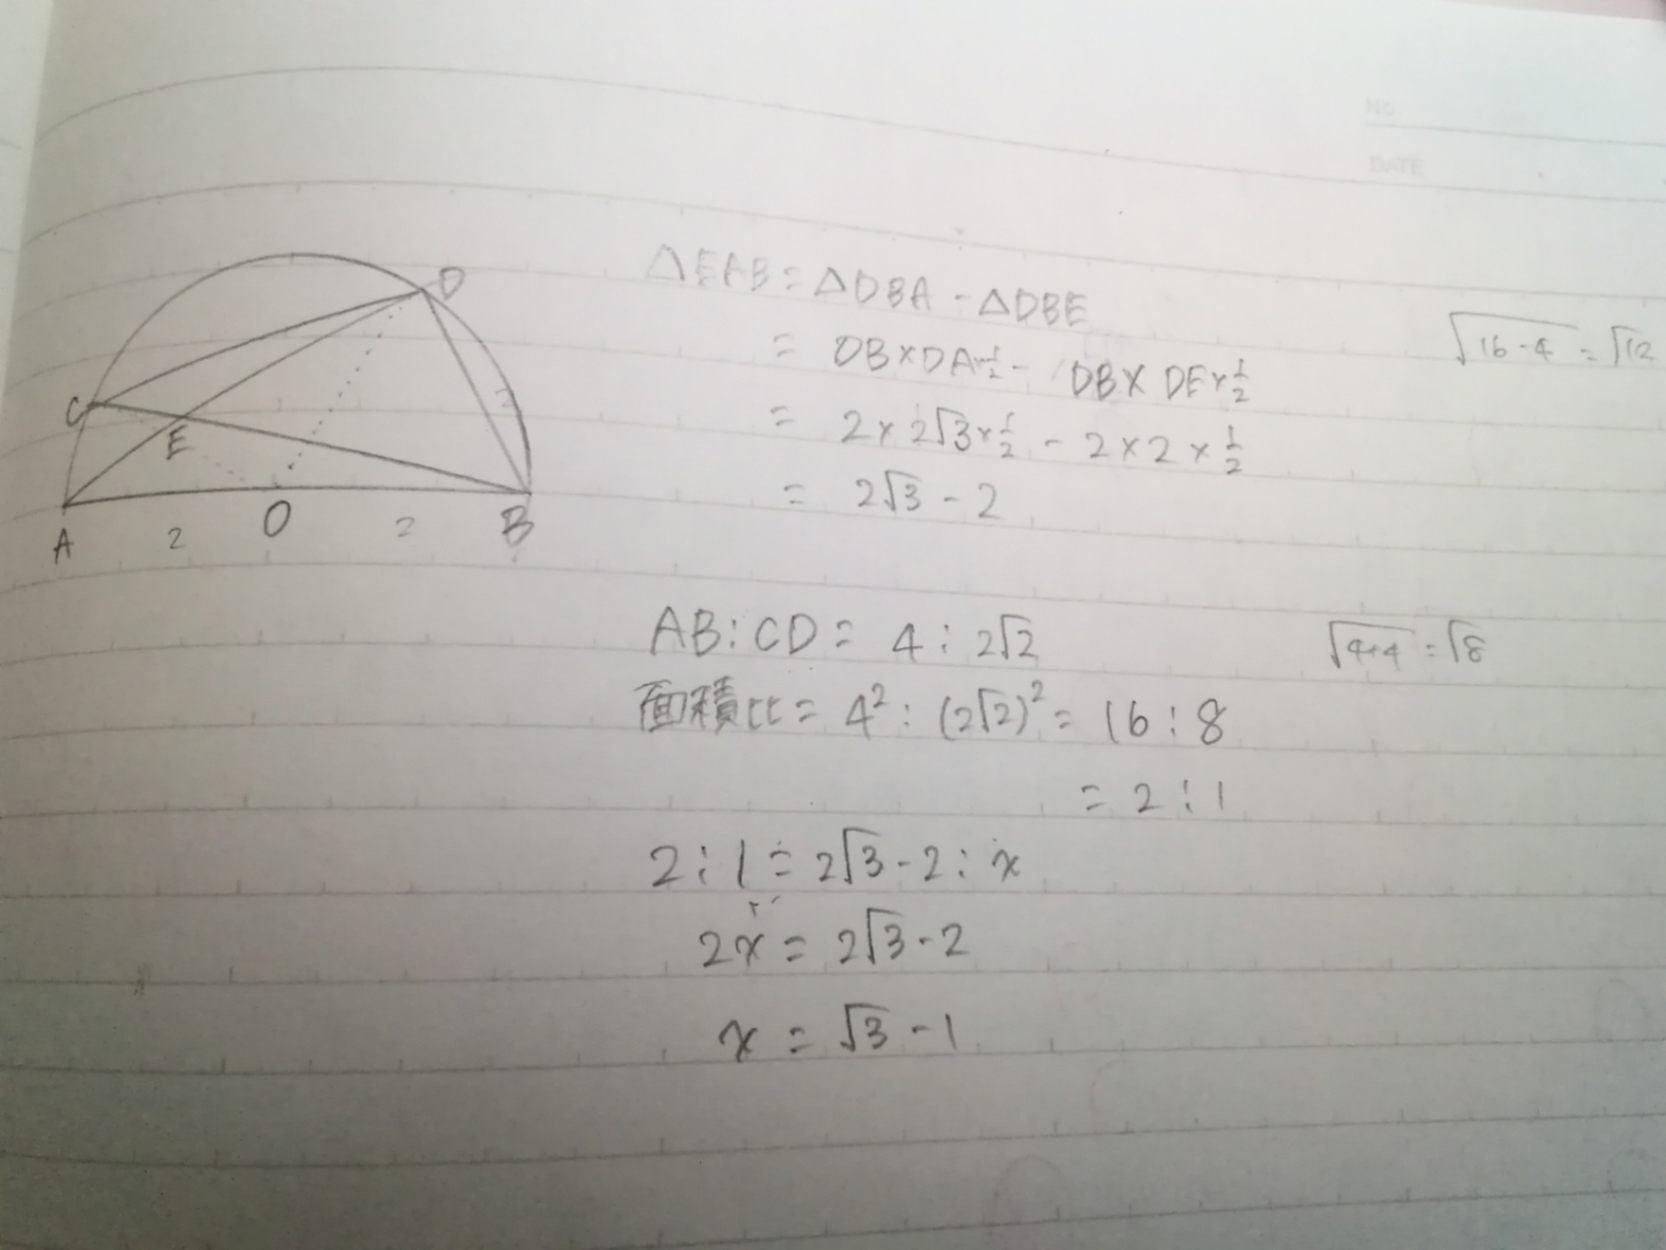 NO.
DATE
D
C
E
A 2 O 2 B
△EAB = △DBA - △DBE
= DB×DA×1/2 - DB×DE×1/2
= 2×2√3×1/2 - 2×2×1/2
= 2√3 - 2
√16-4 = √12
AB:CD = 4 : 2√2
√4+4 = √8
面積比 = 4² : (2√2)² = 16 : 8
= 2 : 1
2 : 1 = 2√3 - 2 : x
2x = 2√3 - 2
x = √3 - 1